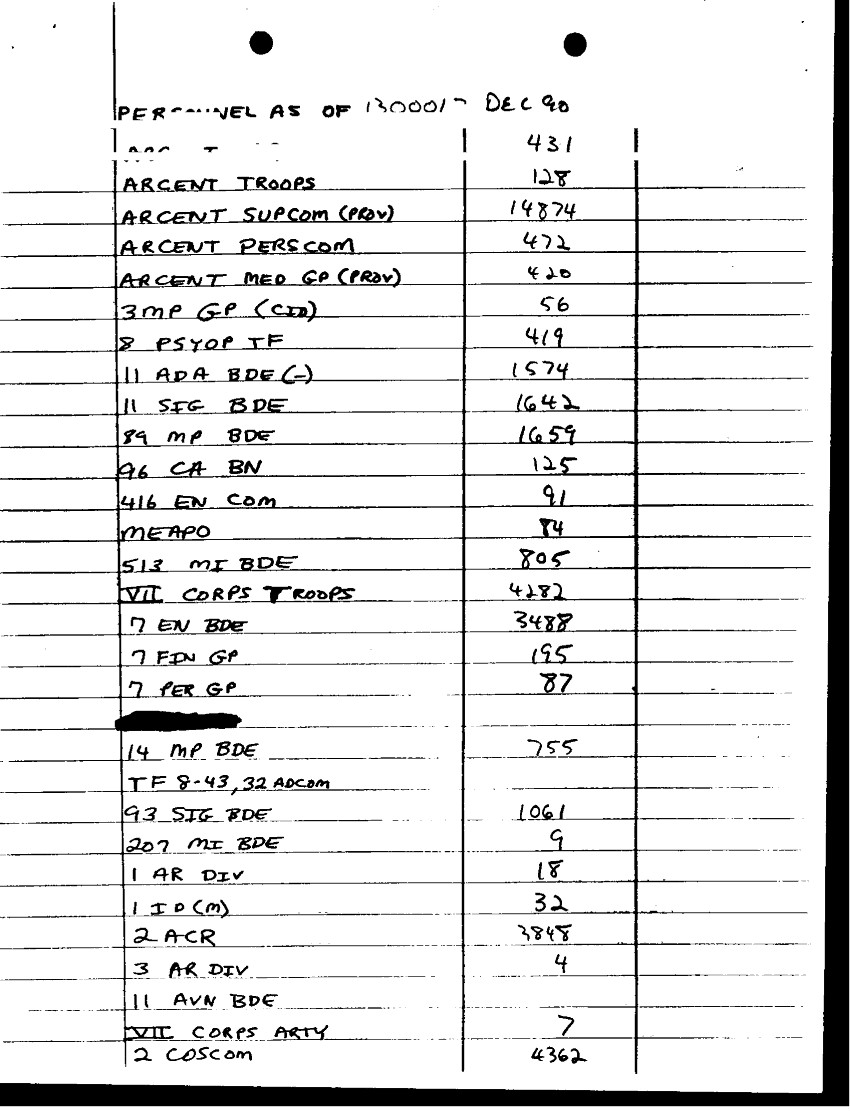 PERSONNEL AS OF 130001 DEC 90
431
ARCENT TROOPS 128
ARCENT SUPCOM (PROV) 14874
ARCENT PERSCOM 472
ARCENT MED GP (PROV) 420
3 MP GP (CID) 56
8 PSYOP TF 419
11 ADA BDE (-) 1574
11 SIG BDE 1642
89 MP BDE 1659
96 CA BN 125
416 EN COM 91
MEAPO 84
513 MI BDE 805
VII CORPS TROOPS 4282
7 EN BDE 3488
7 FIN GP 195
7 PER GP 87
14 MP BDE 755
TF 8-43, 32 ADCOM
93 SIG BDE 1061
207 MI BDE 9
1 AR DIV 18
1 ID (M) 32
2 ACR 3848
3 AR DIV 4
11 AVN BDE
VII CORPS ARTY 7
2 COSCOM 4362